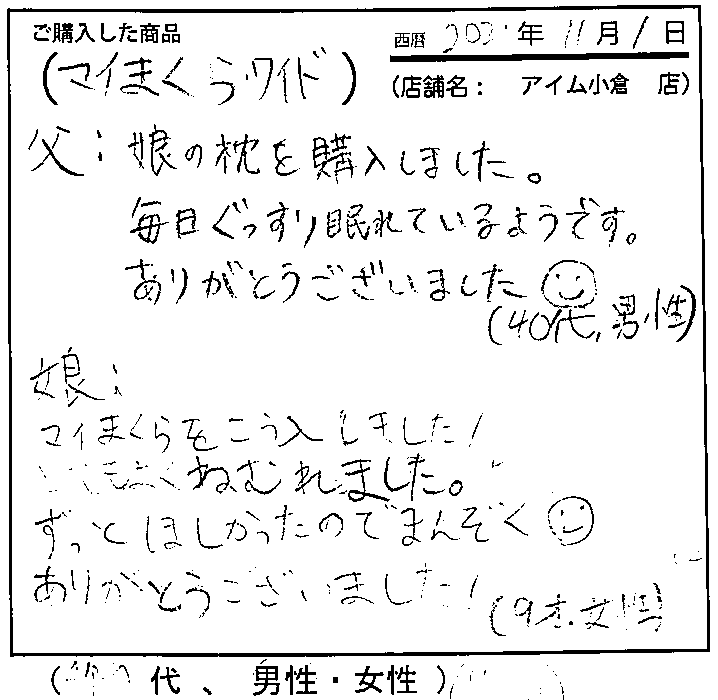 ご購入した商品
西暦 202 年 11月 1日
(マイまくらワイド)
(店舗名: アイム小倉 店)
父: 娘の枕を購入しました。
毎日ぐっすり眠れているようです。
ありがとうございました
(40代, 男性)
娘:
マイまくらをこう入しました!
とてもよくねむれました。
ずっとほしかったのでまんぞく
ありがとうございました!
(9才.女性)
( 代、男性・女性)